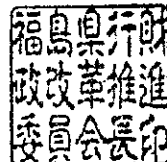 福島県行財
政改革推進
委員会長印